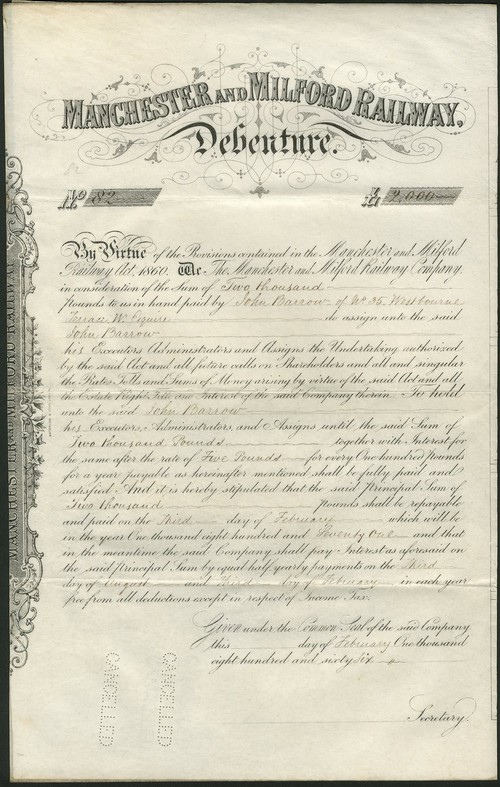 MANCHESTER AND MILFORD RAILWAY,
Debenture.
No 82
£ 2,000
By Virtue of the Provisions contained in the Manchester and Milford
Railway Act. 1860. We The Manchester and Milford Railway Company,
in consideration of the Sum of Two thousand
Pounds to us in hand paid by John Barrow of No 35, Westbourne
Terrace W. Esquire do assign unto the said
John Barrow
his Executors Administrators and Assigns the Undertaking authorized
by the said Act and all future calls on Shareholders and all and singular
the Rates Tolls and Sums of Money arising by virtue of the said Act and all
the Estate Right Title and Interest of the said Company therein. To hold
unto the said John Barrow
his Executors, Administrators, and Assigns until the said Sum of
Two thousand Pounds together with Interest for
the same after the rate of Five Pounds for every One hundred Pounds
for a year payable as hereinafter mentioned shall be fully paid and
satisfied. And it is hereby stipulated that the said Principal Sum of
Two thousand Pounds shall be repayable
and paid on the Third day of February which will be
in the year One thousand eight hundred and Seventy One and that
in the meantime the said Company shall pay Interest as aforesaid on
the said Principal Sum by equal half yearly payments on the Third
day of August and Third day of February in each year
free from all deductions except in respect of Income Tax.
Given under the Common Seal of the said Company
this day of February One thousand
eight hundred and sixty six
Secretary.
CANCELLED
CANCELLED
MANCHESTER AND MILFORD RAILWAY